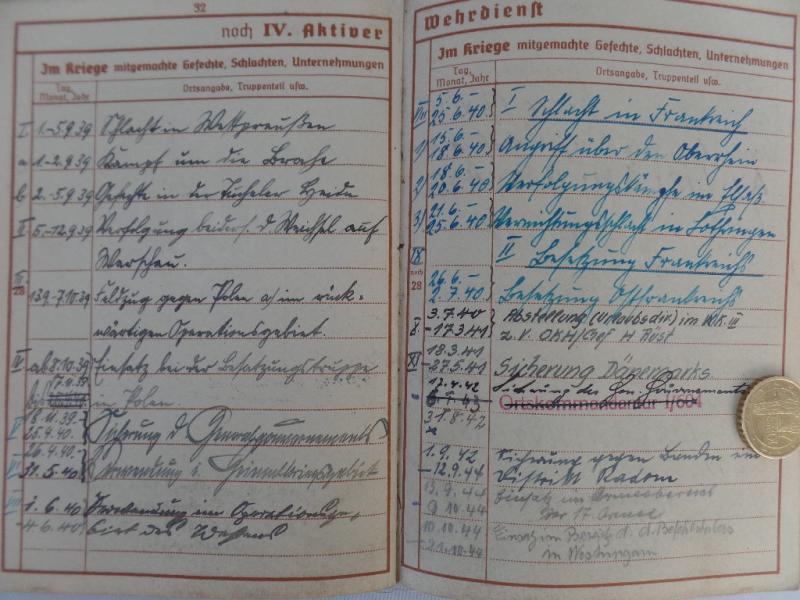 32
noch IV. Aktiver
Im Kriege mitgemachte Gefechte, Schlachten, Unternehmungen
Tag, Monat, Jahr
Ortsangabe, Truppenteil usw.
I 1.-5.9.39 Schlacht in Westpreußen
a 1.-2.9.39 Kampf um die Brahe
b 2.-5.9.39 Gefechte in der Tucheler Heide
II 5.-12.9.39 Verfolgung beiders. d. Weichsel auf
Warschau.
III
28 13.9.-7.10.39 Feldzug gegen Polen a) im rück-
wärtigen Operationsgebiet.
IV ab 8.10.39 Einsatz bei der Besatzungstruppe
bis 17.11.39 in Polen.
V 18.11.39-
25.4.40. Sicherung d. Generalgouvernements
VI 26.4.40.-
31.5.40 Verwendung i. Heimatkriegsgebiet
VII 1.6.40
4.6.40 Verwendung im Operationsge-
biet des Westens
Wehrdienst
Im Kriege mitgemachte Gefechte, Schlachten, Unternehmungen
Tag, Monat, Jahr
Ortsangabe, Truppenteil usw.
VIII 5.6.-
25.6.40 I Schlacht in Frankreich
1) 15.6.-
18.6.40 Angriff über den Oberrhein
2) 18.6.-
20.6.40 Verfolgungskämpfe im Elsaß
3) 21.6.-
25.6.40 Vernichtungsschlacht in Lothringen
IX II Besetzung Frankreichs
noch
28 26.6.-
2.7.40 Besetzung Ostfrankreichs
X. 3.7.40
-17.3.41 Abstellung (Urlaubsdiv.) im WK. III
z. V. OKH/Chef H Rüst
XI 18.3.41
-27.5.41 Sicherung Dänemarks
17.4.42 Sicherung des Gen. Gouvernements
Ortskommandantur I/604
31.8.42
1.9.42
-12.9.44 Sicherung gegen Banden im
Distrikt Radom
13.9.44
9.10.44 Einsatz im Armeebereich
der 17. Armee
10.10.44
Einsatz im Bereich d. d. Befehlshabers
in Westungarn